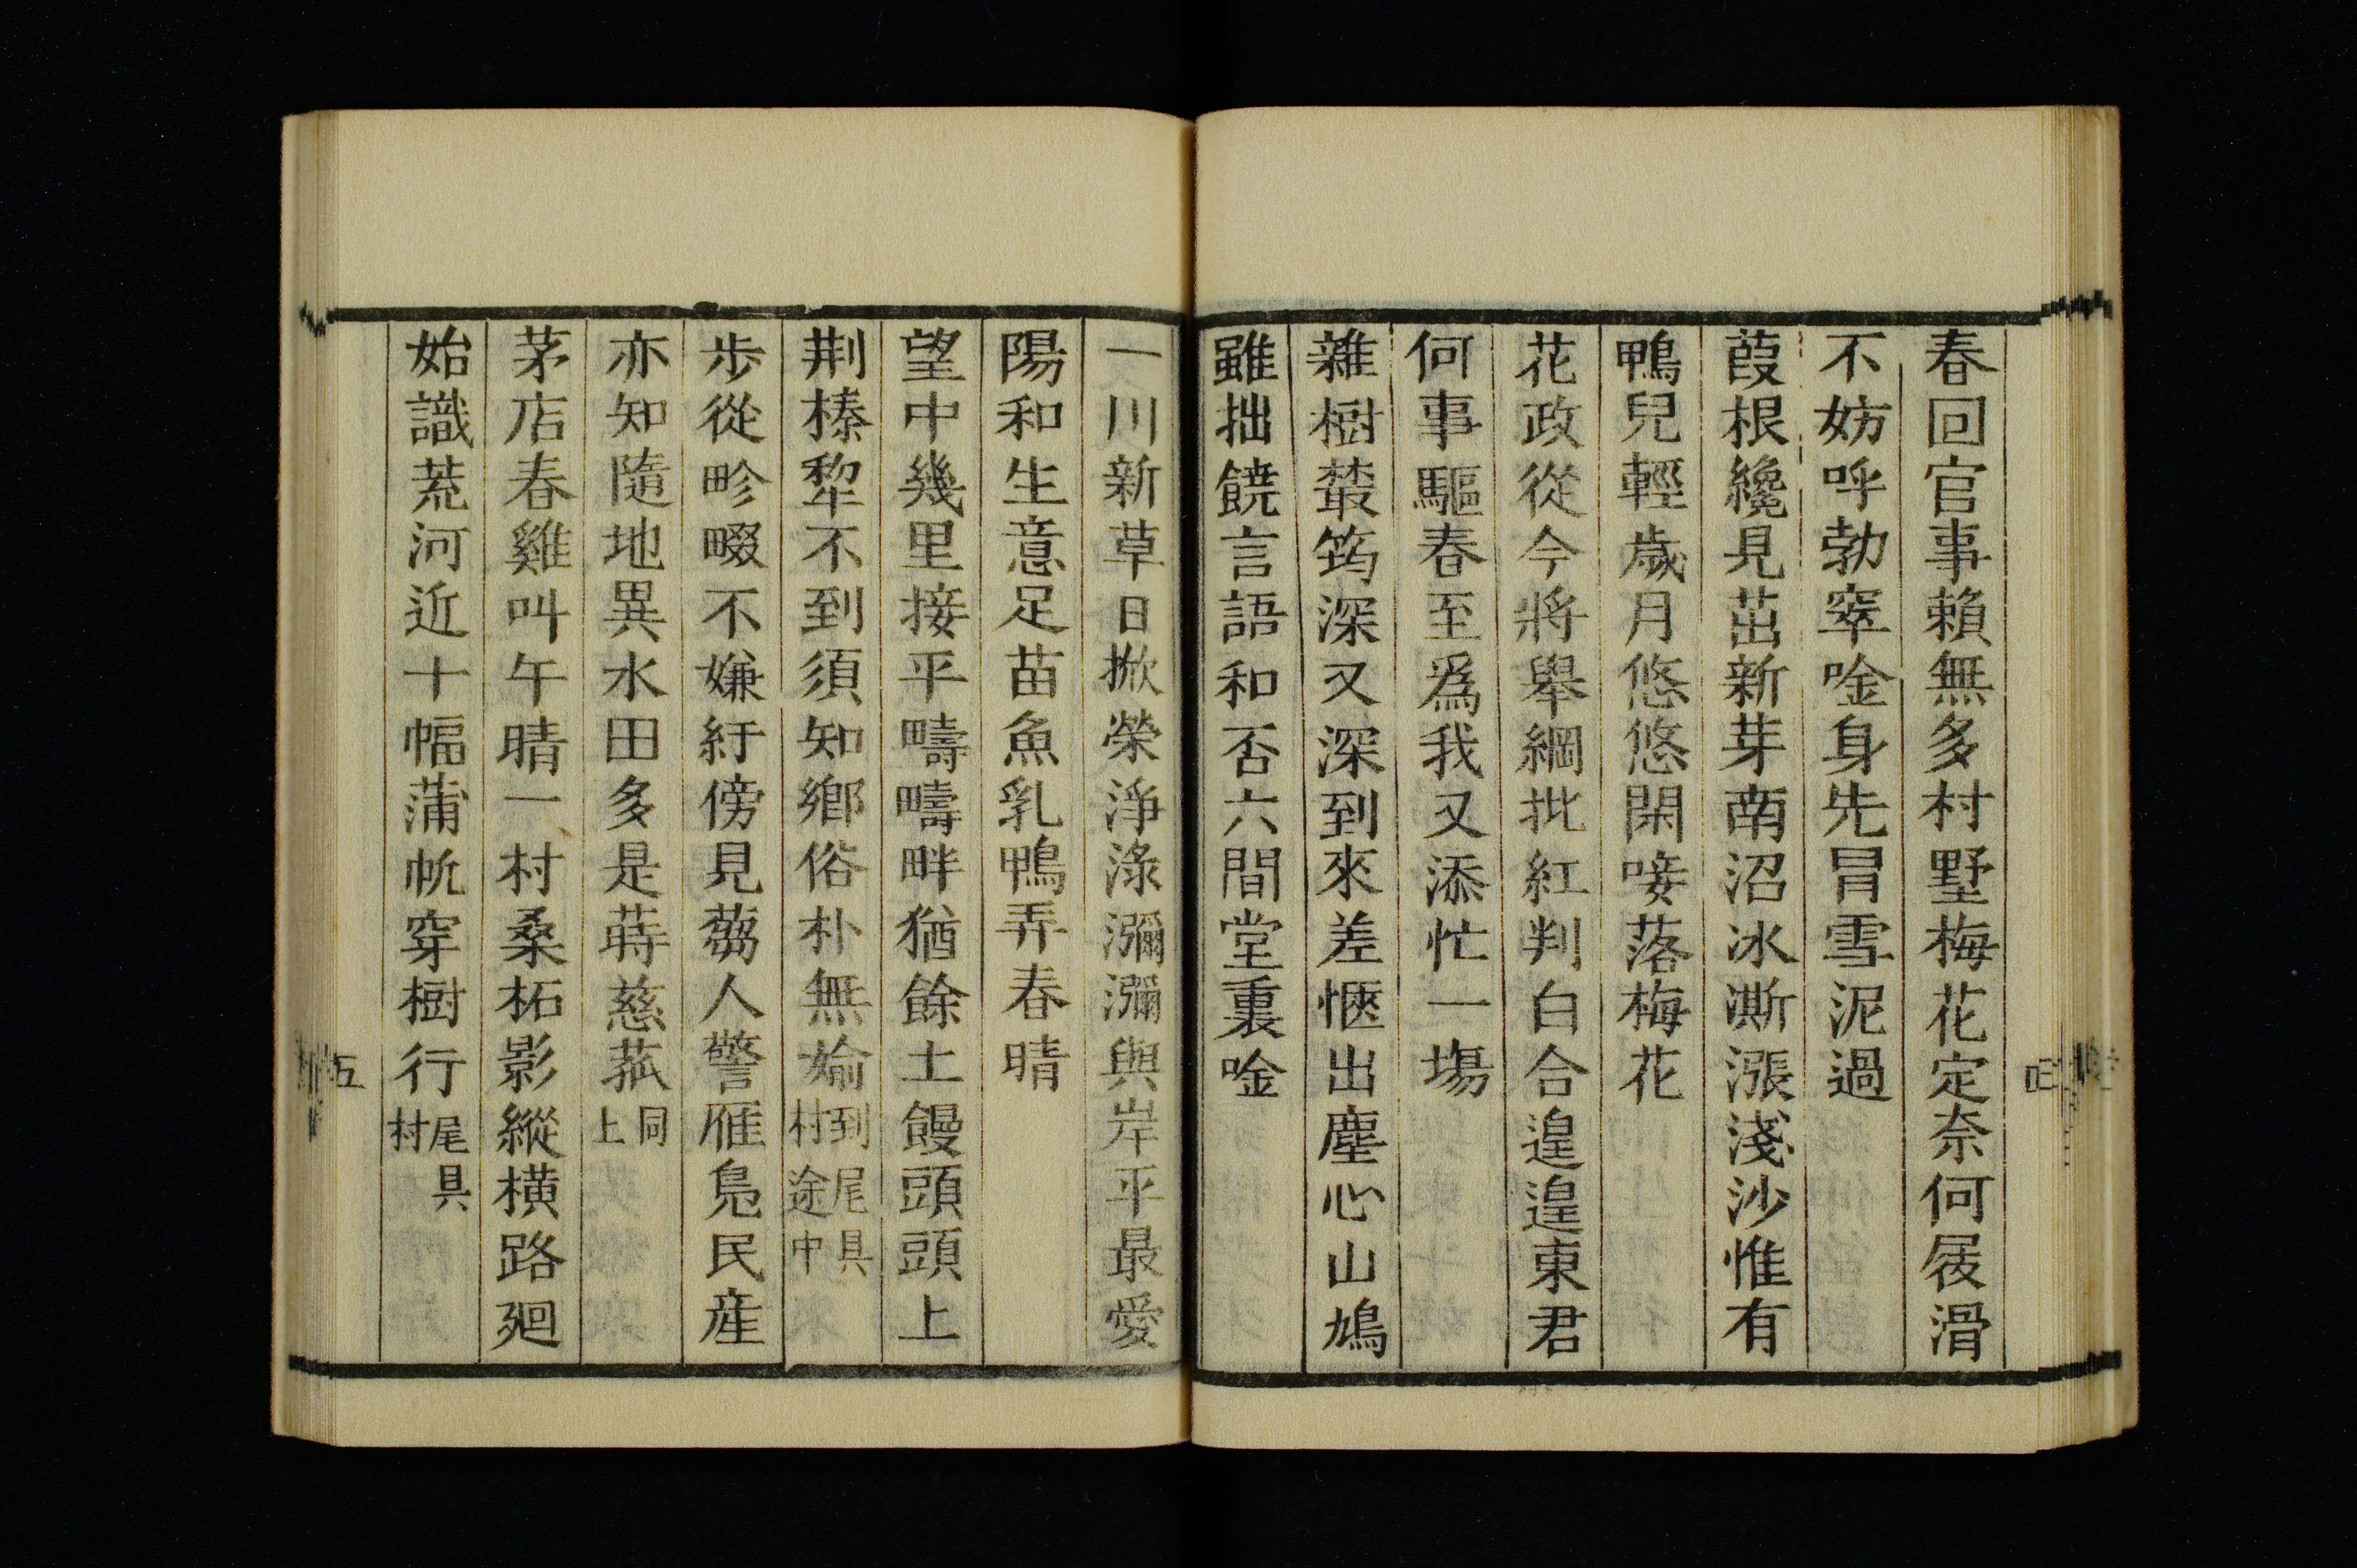 春回官事頼無多村墅梅花定奈何屐滑
不妨呼勃窣唫身先冒雪泥過
葭根纔見茁新芽南沼冰澌漲淺沙惟有
鴨兒輕歲月悠悠閑唼落梅花
花政從今將舉綱批紅判白合遑遑東君
何事驅春至爲我又添忙一場
雜樹叢筠深又深到來差愜出塵心山鳩
雖拙饒言語和否六間堂裏唫
一川新草日掀榮淨淥瀰瀰與岸平最愛
陽和生意足苗魚乳鴨弄春晴
望中幾里接平疇疇畔猶餘土饅頭頭上
荆榛犂不到須知鄉俗朴無婾到尾具
村途中
步從畛畷不嫌紆傍見蒭人警雁鳧民産
亦知隨地異水田多是蒔慈菰同
上
茅店春雞叫午晴一村桑柘影縱横路廻
始識荒河近十幅蒲帆穿樹行尾具
村
五